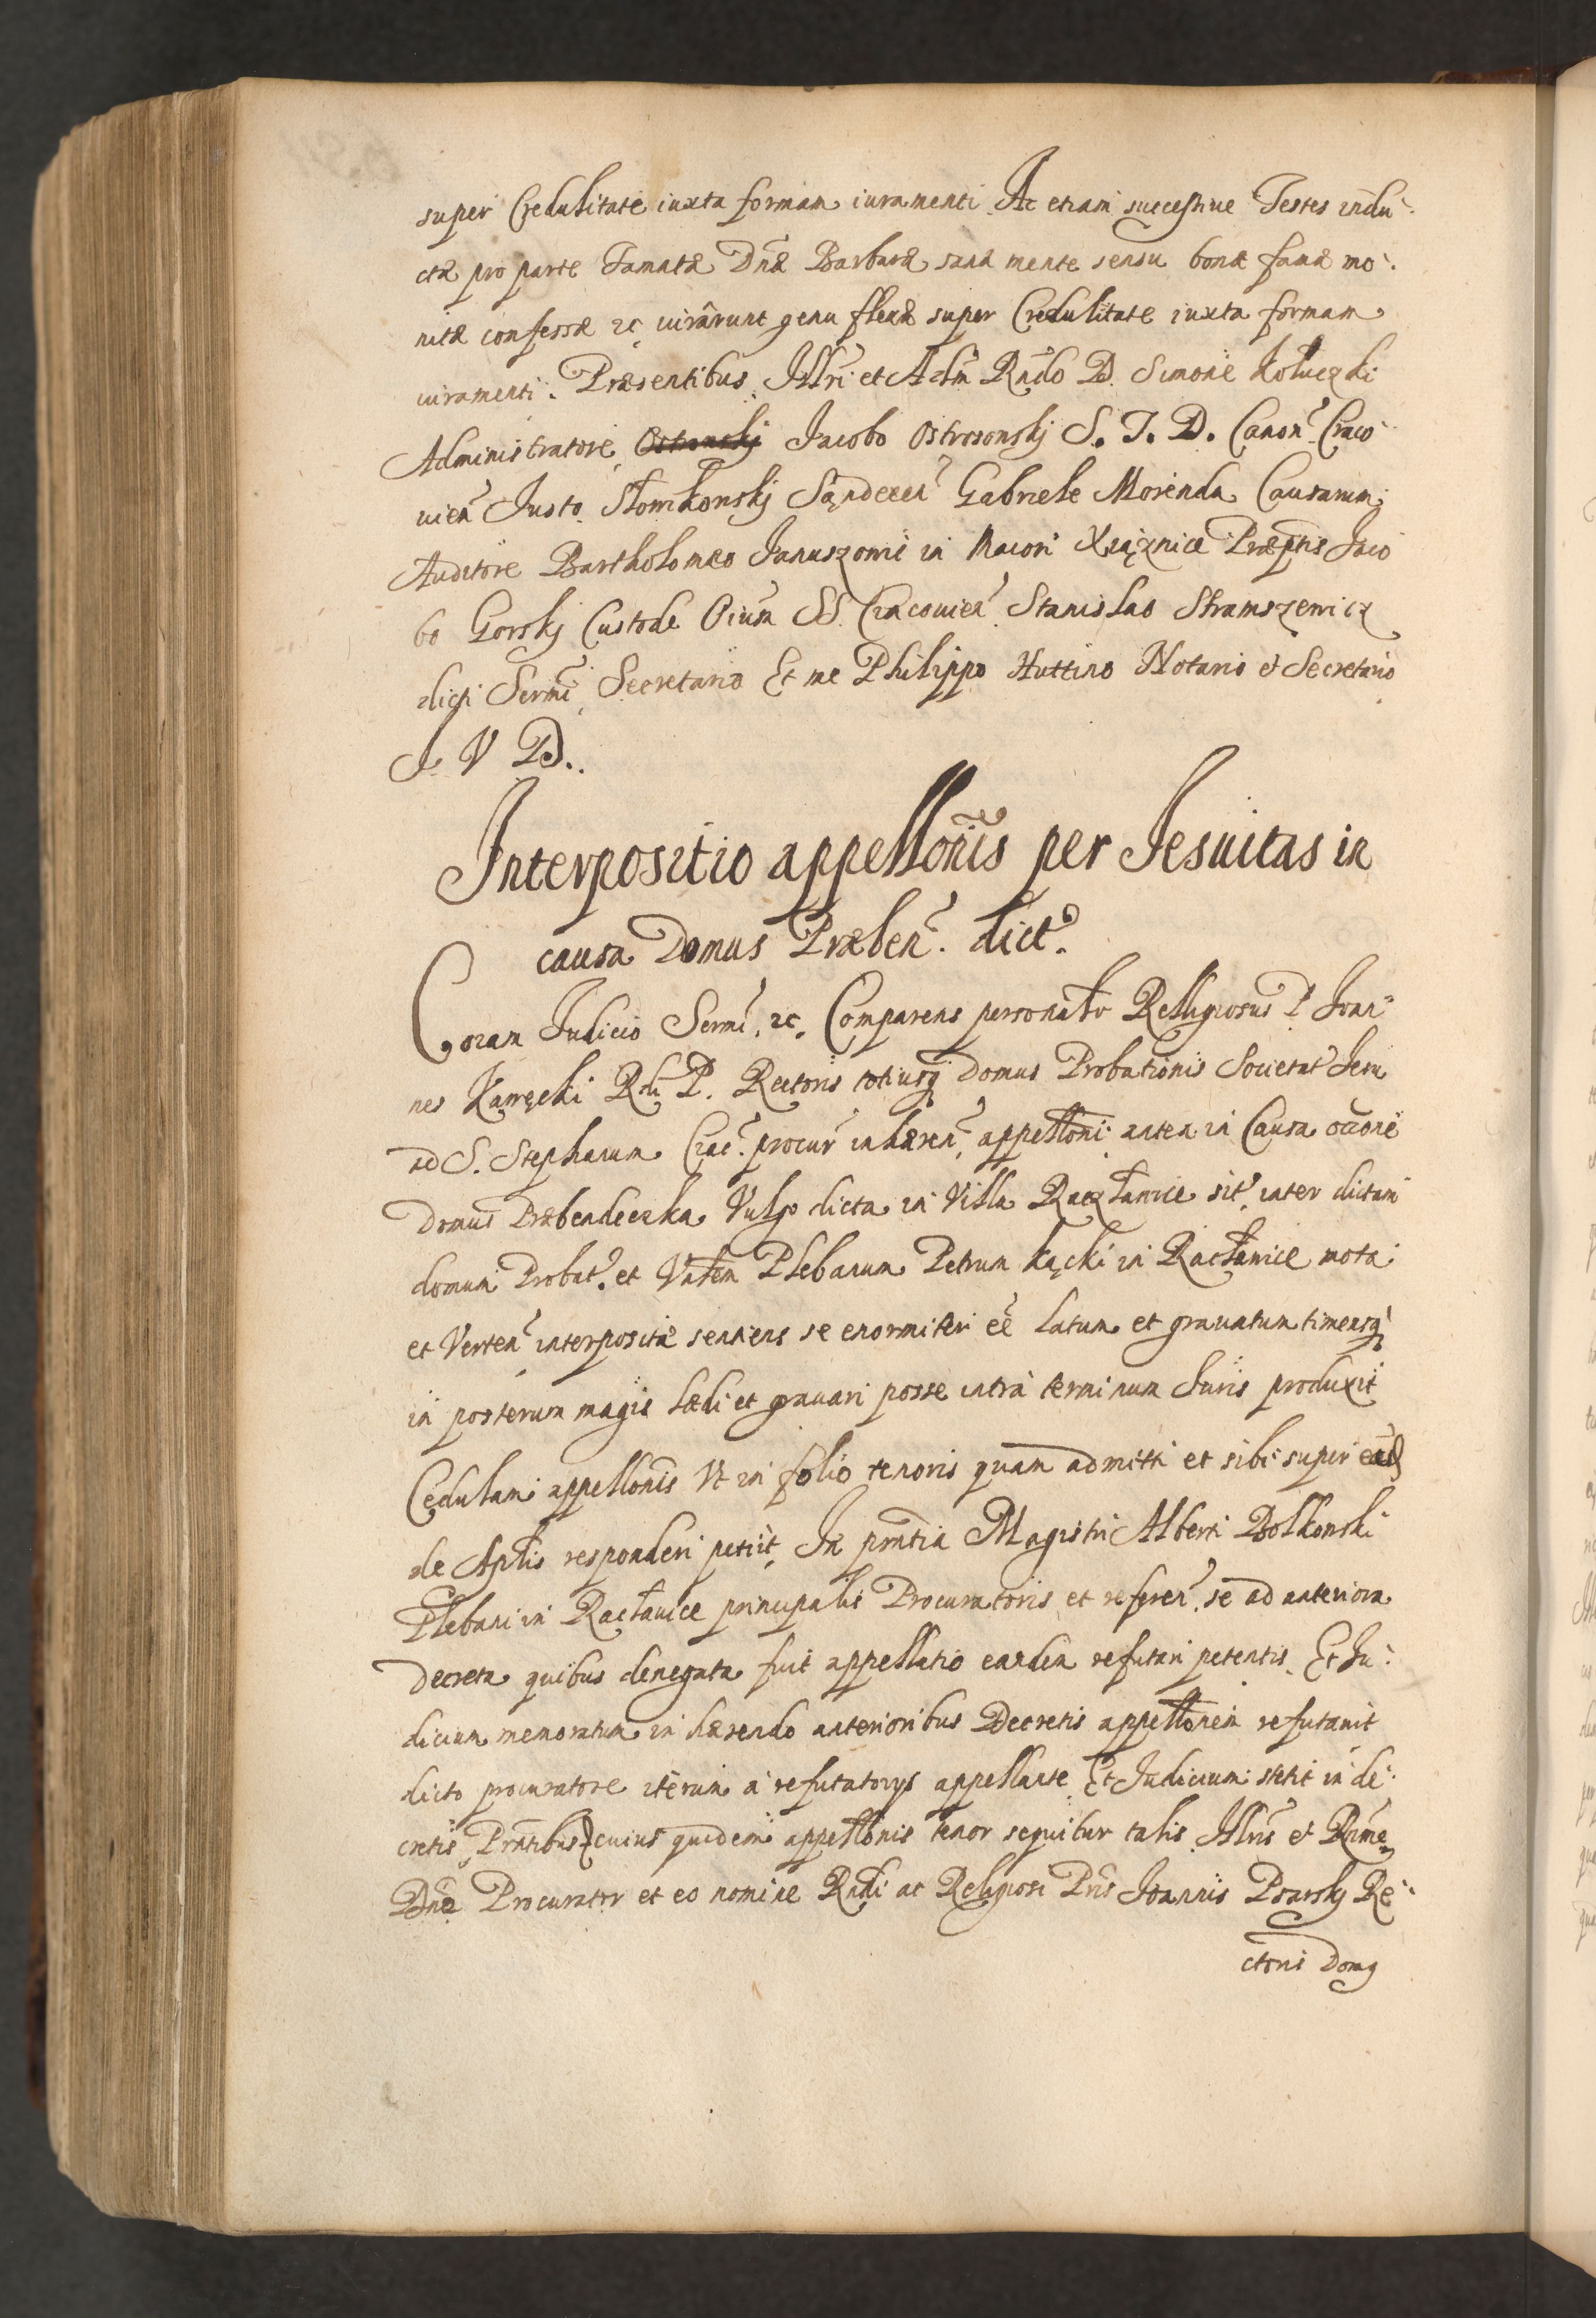 super Credulitate iuxta formam iuramenti Ac etiam successiue Testes indu-
ctæ pro parte Famatæ Dnæ Barbaræ sanæ mente sensu bonæ famæ mo-
nitæ confessæ etc iurârunt genu flexæ super Credulitate iuxta formam
iuramenti. Præsentibus Illri et Adm Rndo D. Simone Kołuczki
Administratore Ostronskj Jacobo Ostrosonskj S. T. D. Canon Craco
uien Justo Słomkonskj Sądecen Gabriele Morenda Causarum
Auditore Bartholomæo Januszowic in Maiori Xiąznice Præptis Jaco
bo Gorskj Custode Oium SS. Cracouien Stanislao Stramszewicz
dicti Sermi Secretario Et me Philippo Huttino Notario et Secretario
I V D.
Interpositio appellonis per Iesuitas in
causa Domus Præben. dict.
Coram Judicio Sermi. etc. Comparens personalr Relligiosus P Joan-
nes Kawęcki Rdi P. Rectoris totiusq Domus Probationis Societat Jesu
ad S. Stephanum Crac. procur inhæren appelloni antea in Causa occone
Domus Præbendeczka Vulgo dicta in Villa Raczławice sit inter dictam
domum Probat. et Vnlem Plebanum Petrum Kącki in Racławice mota
et Verten interpositæ sentiens se enormiter eë læsum et grauatum timensq
in posterum magis lædi et grauari posse intrà terminum Juris produxit
Cedulam appellonis Vt in folio tenoris quam admitti et sibi super ead
de Aplis responderi petiit In pntia Magistri Alberti Bolkonski
Plebani in Racławice principalis Procuratoris et referen se ad anteriora
Decreta quibus denegata fuit appellatio eandem refutari petentis Et Ju-
dicium memoratum in hærendo anterioribus Decretis appellonem refutauit
dicto procuratore iterum à refutatorys appellante Et Judicium stetit in de-
cretis Pntibus cuius quidem appellonis tenor sequitur talis Illris et Rme
Dne Procurator et eo nomine Rndi ac Religiosi Pris Joannis Psarskj Re-
ctoris Domq